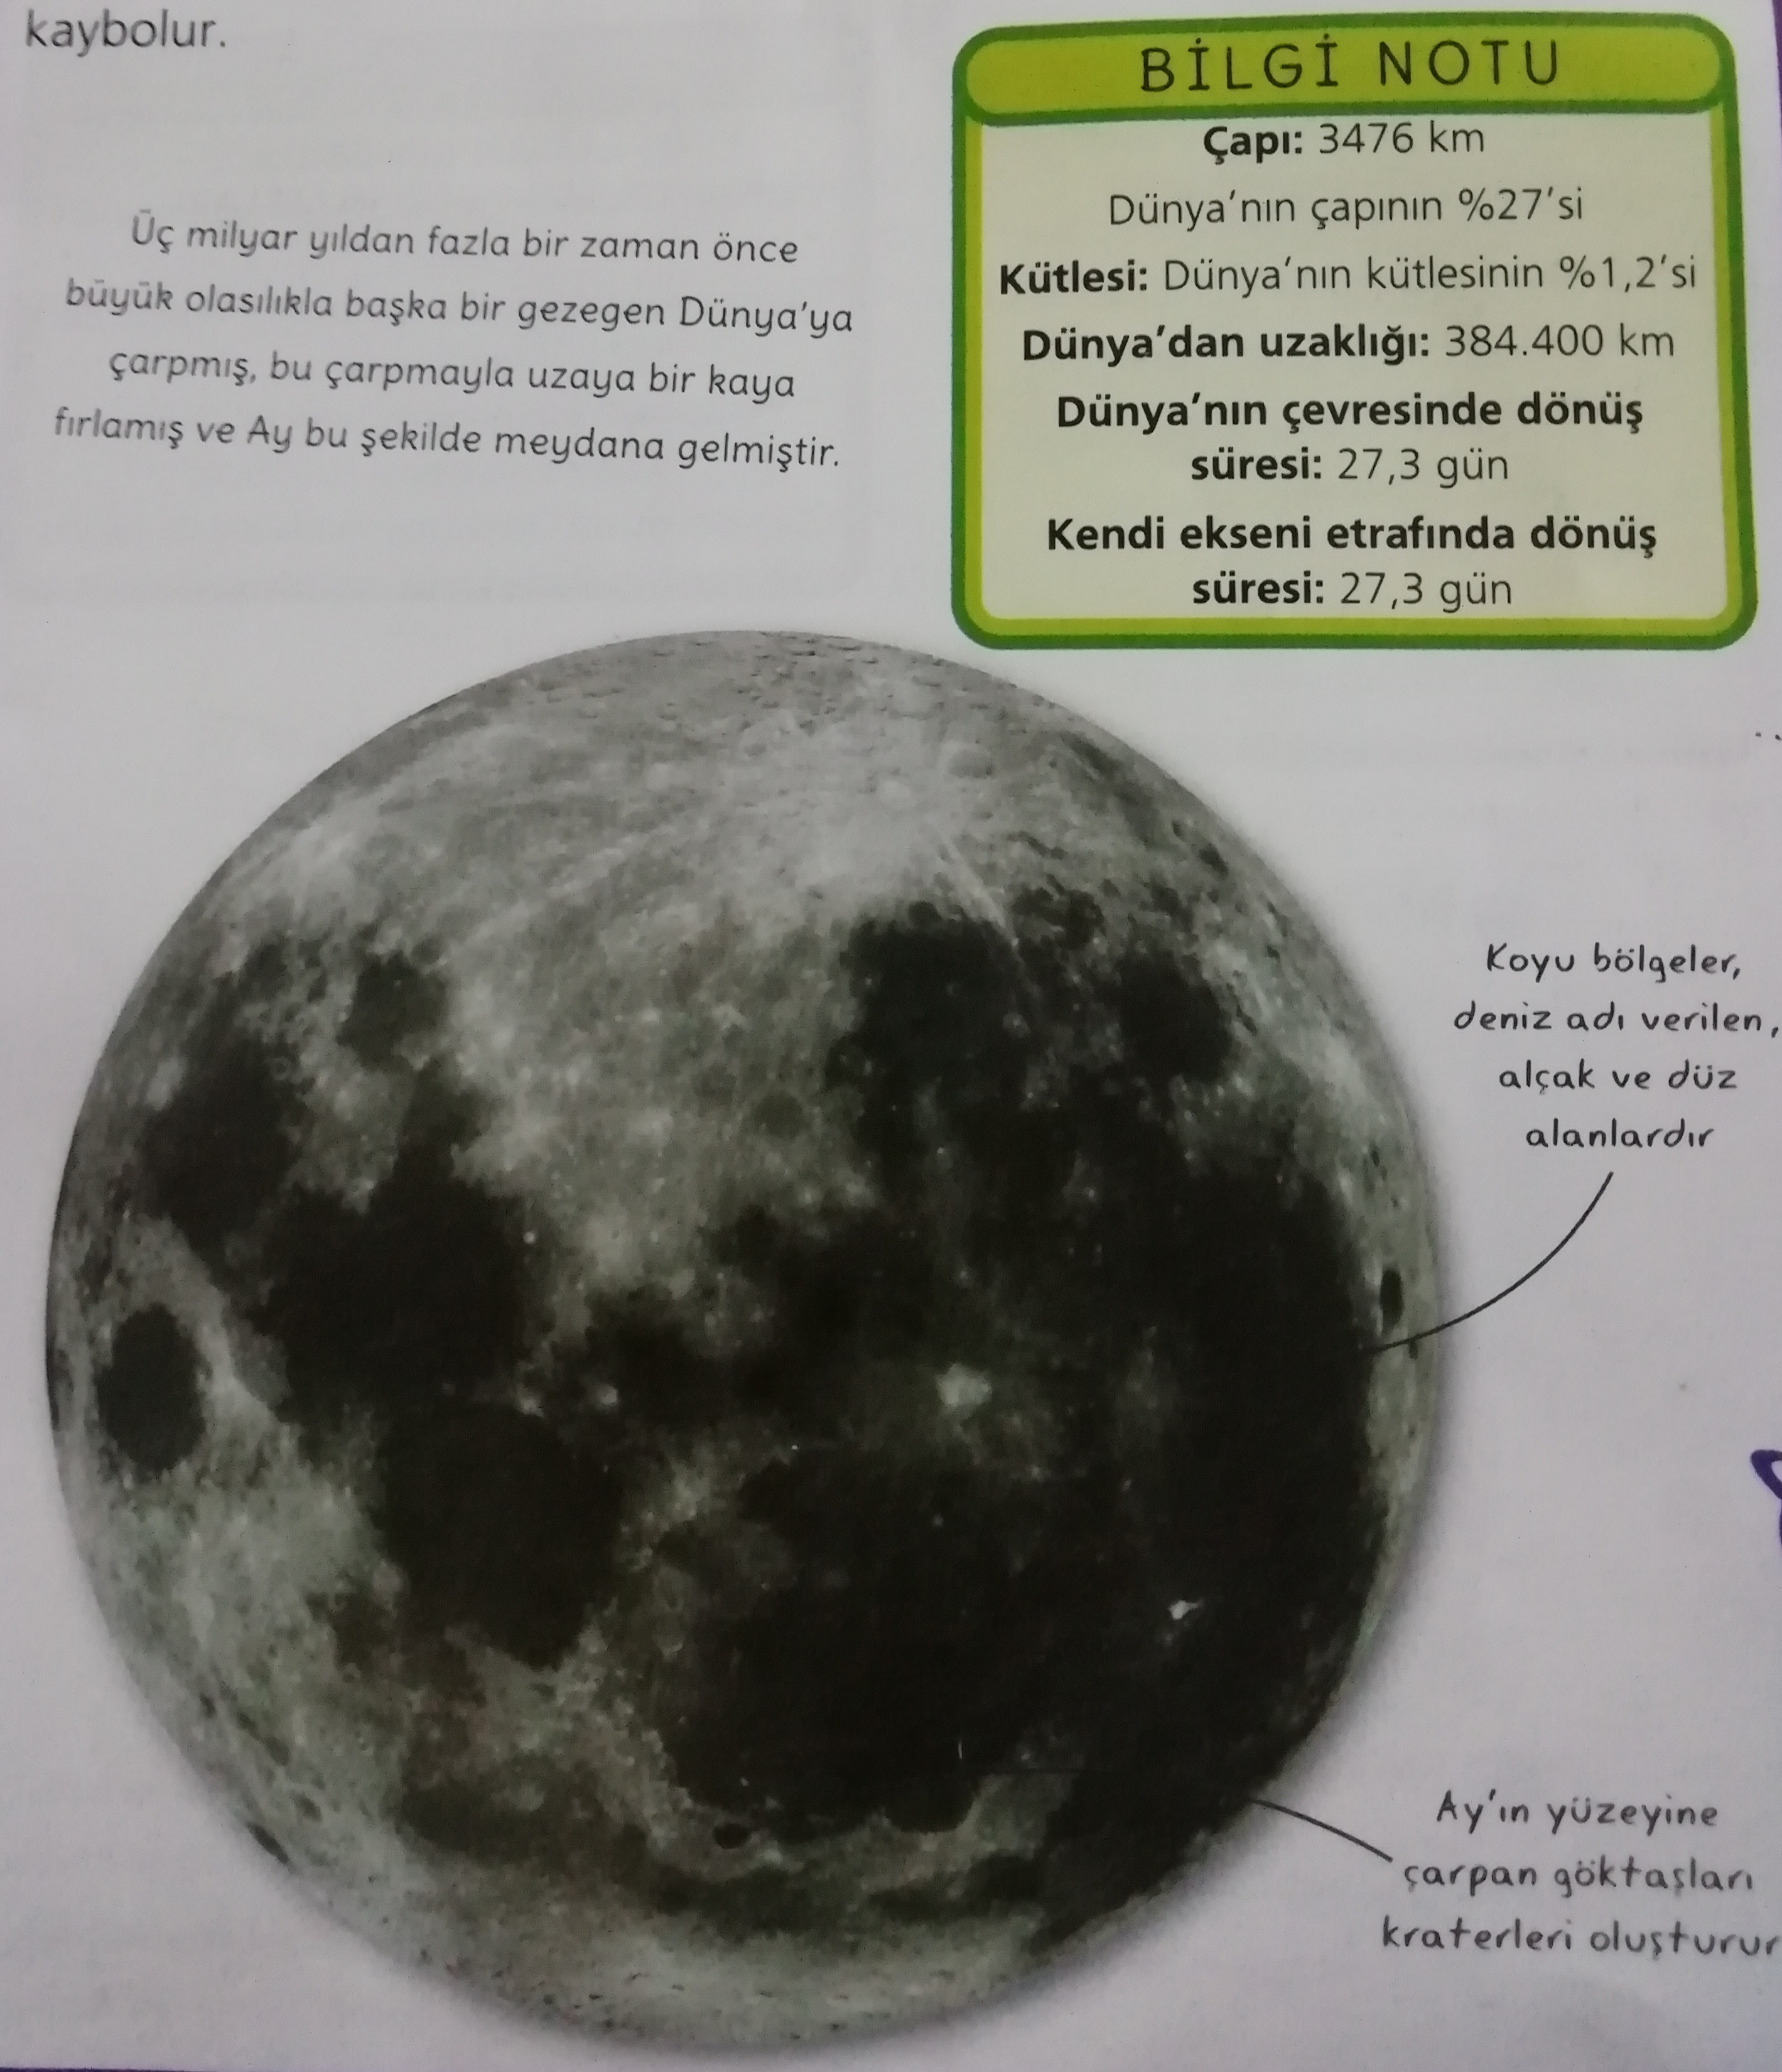 kaybolur.
Üç milyar yıldan fazla bir zaman önce
büyük olasılıkla başka bir gezegen Dünya'ya
çarpmış, bu çarpmayla uzaya bir kaya
fırlamış ve Ay bu şekilde meydana gelmiştir.
BİLGİ NOTU
Çapı: 3476 km
Dünya'nın çapının %27'si
Kütlesi: Dünya'nın kütlesinin %1,2'si
Dünya'dan uzaklığı: 384.400 km
Dünya'nın çevresinde dönüş
süresi: 27,3 gün
Kendi ekseni etrafında dönüş
süresi: 27,3 gün
Koyu bölgeler,
deniz adı verilen,
alçak ve düz
alanlardır
Ay'ın yüzeyine
çarpan göktaşları
kraterleri oluşturur